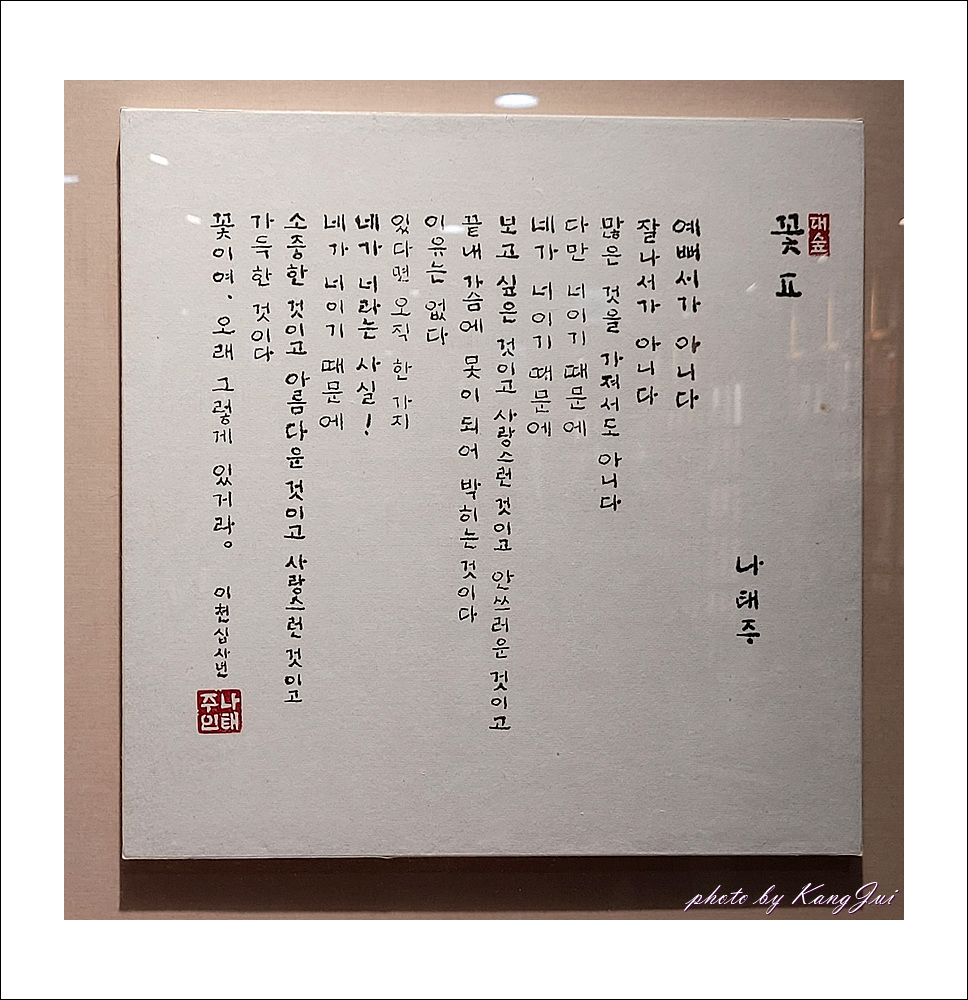 대숲
꽃 Ⅱ
나태주
예뻐서가 아니다
잘나서가 아니다
많은 것을 가져서도 아니다
다만 너이기 때문에
네가 너이기 때문에
보고 싶은 것이고 사랑스런 것이고 안쓰러운 것이고
끝내 가슴에 못이 되어 박히는 것이다
이유는 없다
있다면 오직 한 가지
네가 너라는 사실!
네가 너이기 때문에
소중한 것이고 아름다운 것이고 사랑스런 것이고
가득한 것이다
꽃이여. 오래 그렇게 있거라。 이천십사년
나태주인
photo by KangJui